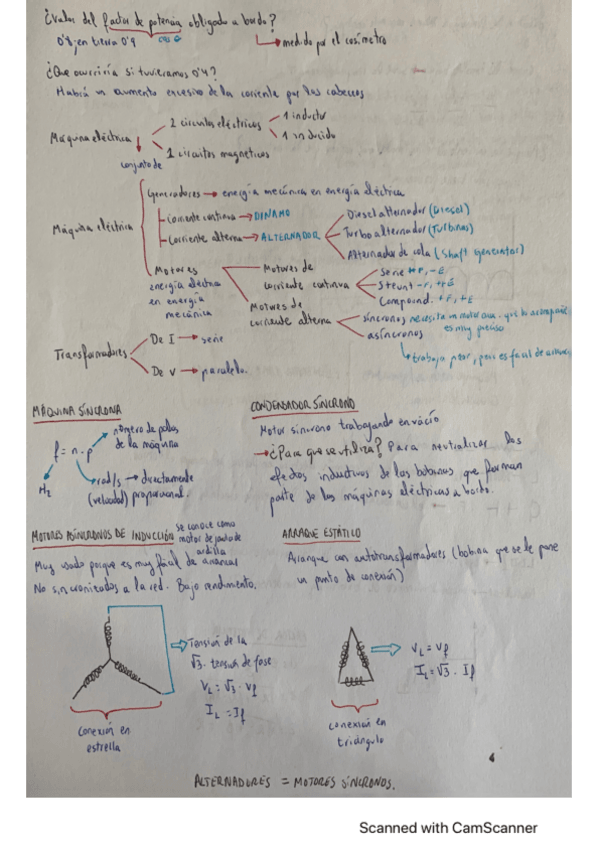 ¿Valor del factor de potencia obligado a bordo?
0'8, en tierra 0'9 cos φ → medido por el cosímetro
¿Que ocurriría si tuvieramos 0'4?
Habría un aumento excesivo de la corriente por los cabeceos
Máquina eléctrica
conjunto de
2 circuitos eléctricos
1 inductor
1 inducido
1 circuitos magnéticos
Máquina eléctrica
Generadores → energía mecánica en energía eléctrica
Corriente continua → DINAMO
Corriente alterna → ALTERNADOR
Dieselalternador (Diesel)
Turboalternador (Turbinas)
Alternador de cola (Shaft generator)
Motores
energía eléctrica
en energía
mecánica
Motores de
corriente continua
Serie +r, -E
Shunt -r, +E
Compound. +r, +E
Motores de
corriente alterna
síncronos necesita un motor aux. que lo acompañe
es muy preciso
asíncronos
trabaja peor, pero es fácil de arrancar
Transformadores
De I → serie
De v → paralelo.
MÁQUINA SÍNCRONA
f = n · p
número de polos
de la máquina
rad/s → directamente
(velocidad) proporcional.
Hz
CONDENSADOR SÍNCRONO
Motor sincrono trabajando en vacío
→ ¿Para que se utiliza? Para neutralizar los
efectos inductivos de las bobinas que forman
parte de las máquinas eléctricas a bordo.
MOTORES ASÍNCRONOS DE INDUCCIÓN
se conoce como
motor de jaula de
ardilla
Muy usado porque es muy fácil de arrancar
No sincronizados a la red. Bajo rendimento.
ARRAQUE ESTÁTICO
Arranque con autotransformadores (bobina que se le pone
un punto de conexión)
Tensión de la
√3 · tensión de fase
VL = √3 · Vf
IL = If
conexión en
estrella
VL = Vf
IL = √3 · If
conexión en
triángulo
ALTERNADORES = MOTORES SÍNCRONOS.
Scanned with CamScanner